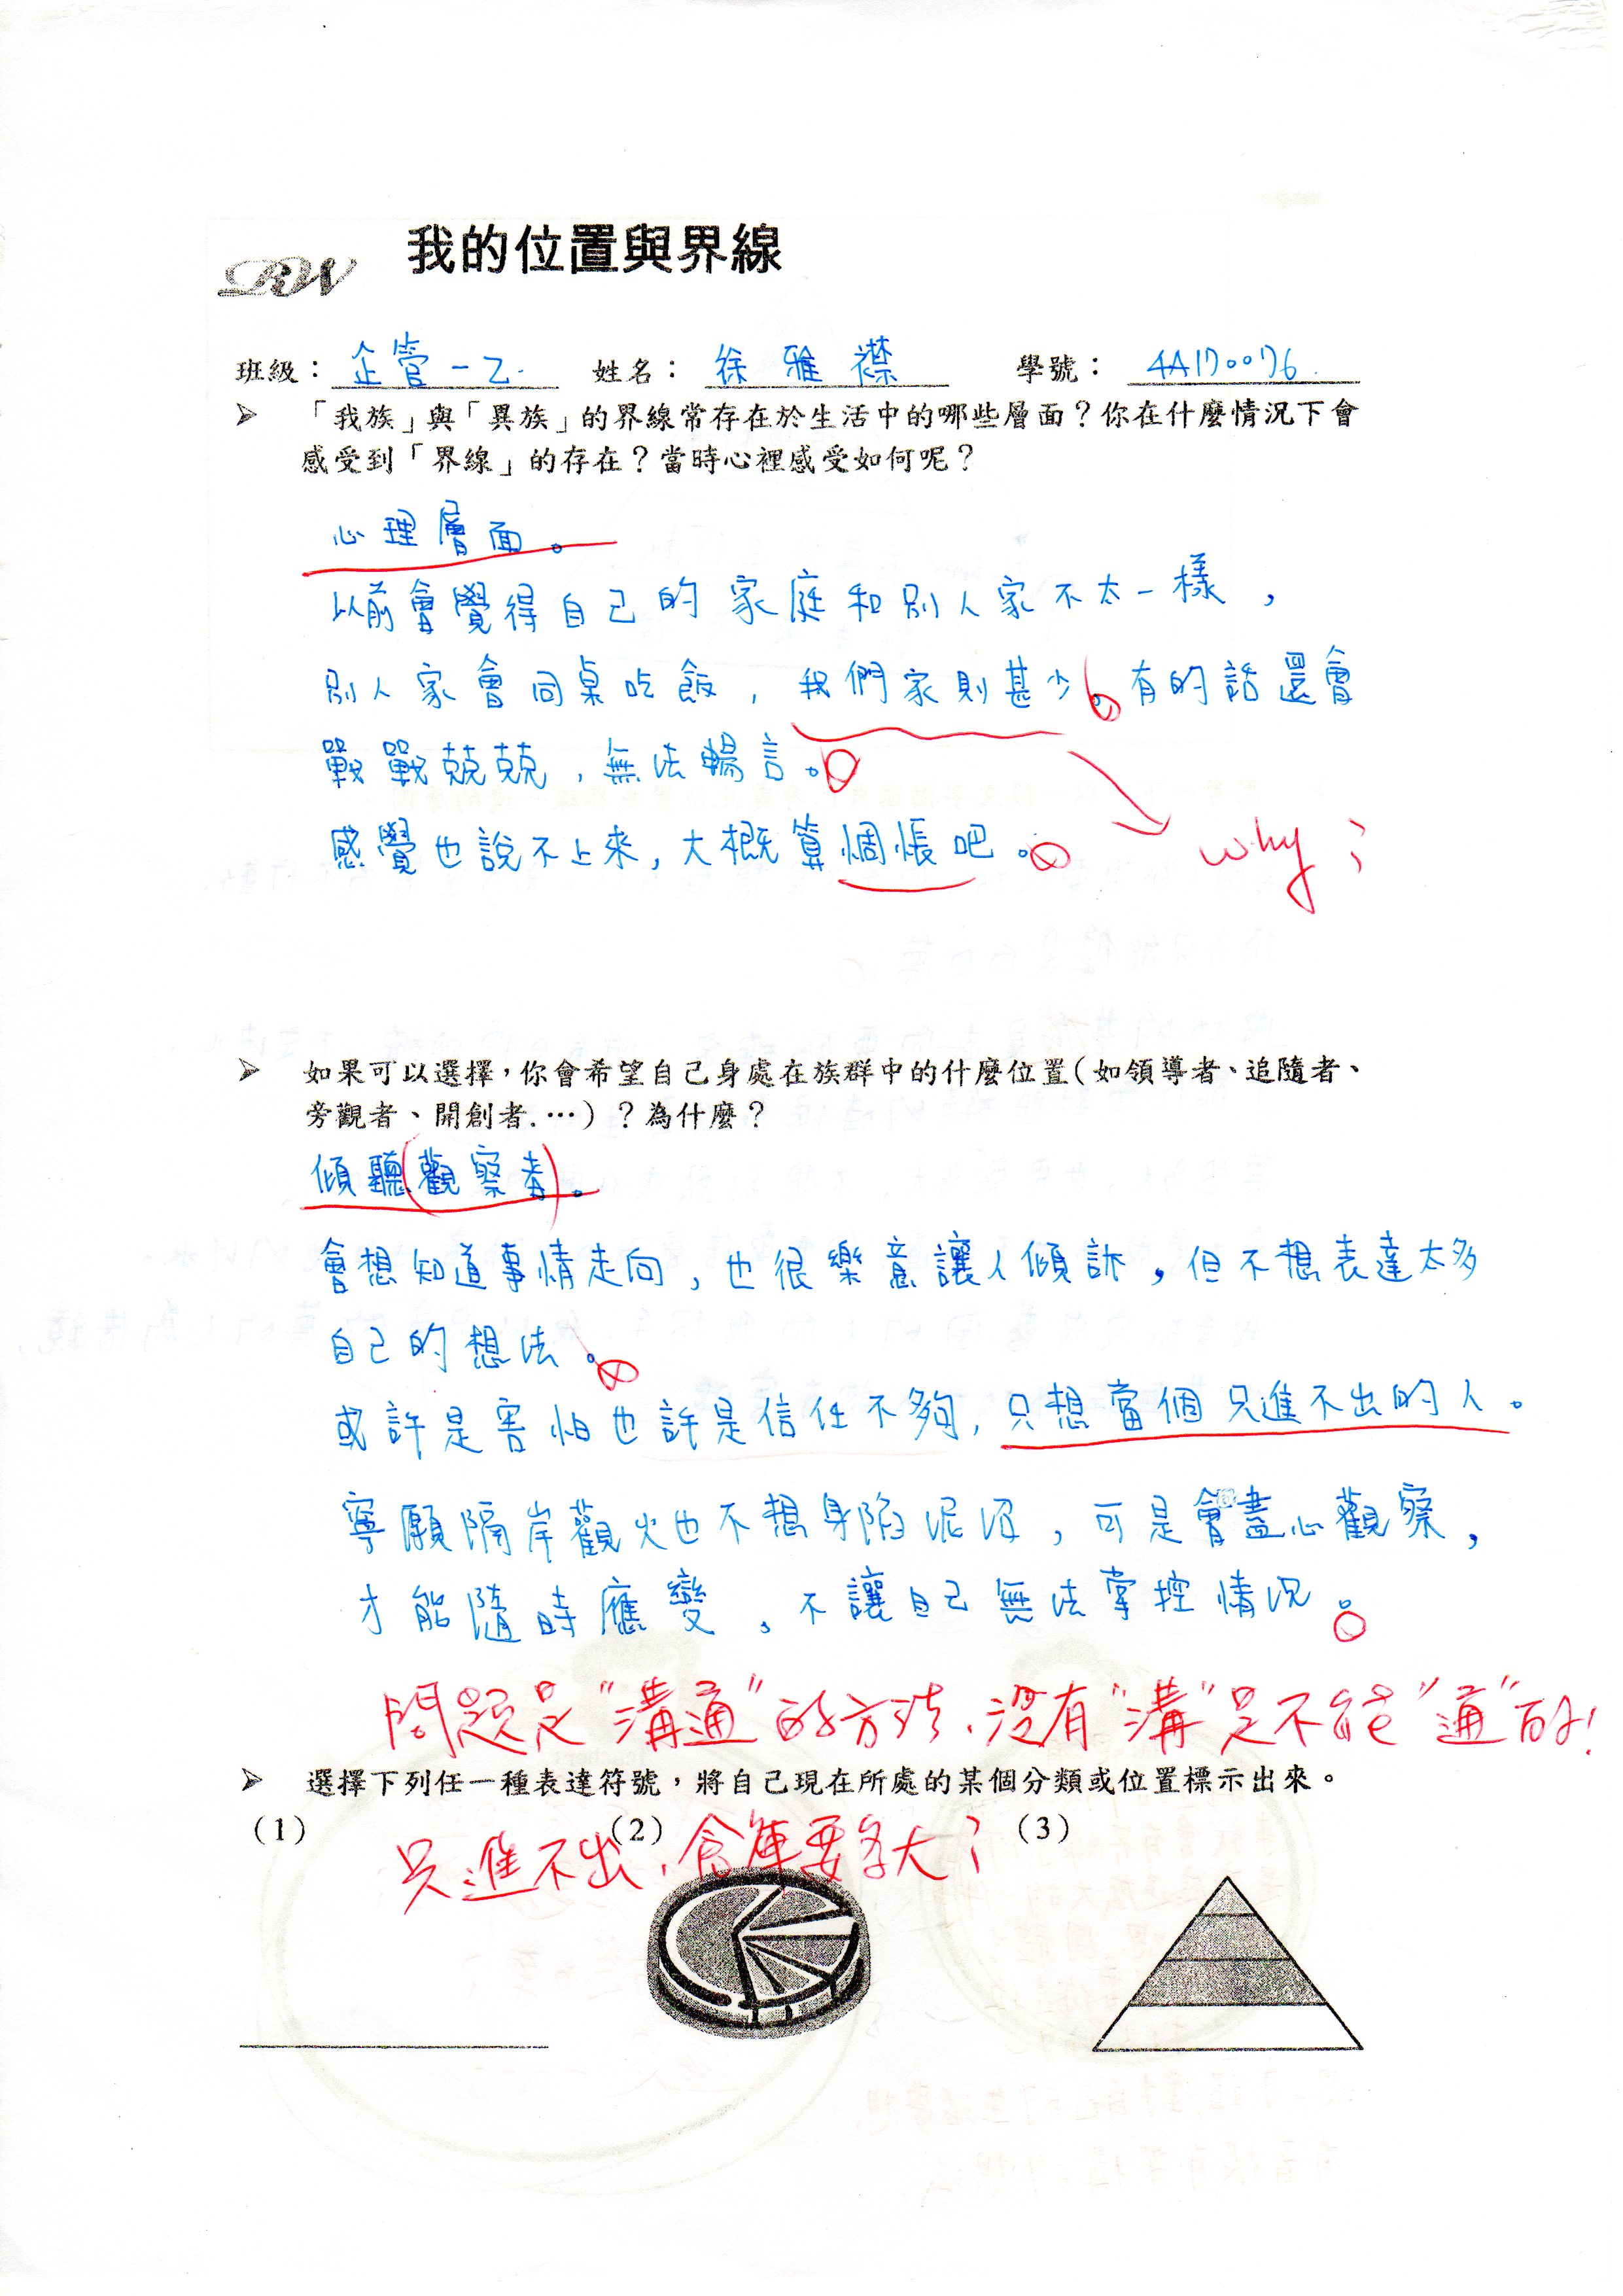 我的位置與界線
RW
班級：企管一乙. 姓名：徐雅襟 學號：4A170076.
➢ 「我族」與「異族」的界線常存在於生活中的哪些層面？你在什麼情況下會
感受到「界線」的存在？當時心裡感受如何呢？
心理層面。
以前會覺得自己的家庭和別人家不太一樣，
別人家會同桌吃飯，我們家則甚少。有的話還會
戰戰兢兢，無法暢言。
感覺也說不上來，大概算悵吧。
why？
➢ 如果可以選擇，你會希望自己身處在族群中的什麼位置（如領導者、追隨者、
旁觀者、開創者.…）？為什麼？
傾聽(觀察者)。
會想知道事情走向，也很樂意讓人傾訴，但不想表達太多
自己的想法。
或許是害怕也許是信任不夠，只想當個只進不出的人。
寧願隔岸觀火也不想身陷泥沼，可是會盡心觀察，
才能隨時應變，不讓自己無法掌控情況。
問題是"溝通"的方法，沒有"溝"是不能"通"的！
➢ 選擇下列任一種表達符號，將自己現在所處的某個分類或位置標示出來。
(1) (2) (3)
只進不出，倉庫要多大？